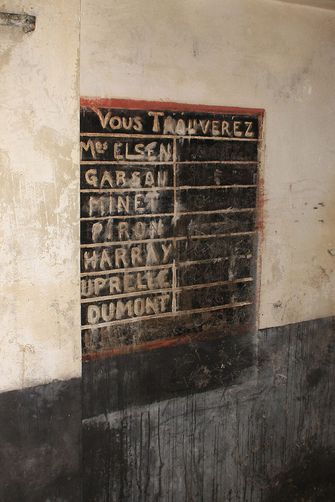 VOUS TROUVEREZ
Mrs ELSEN
GARSOU
MINET
PIRON
HARRAY
UPRELLE
DUMONT